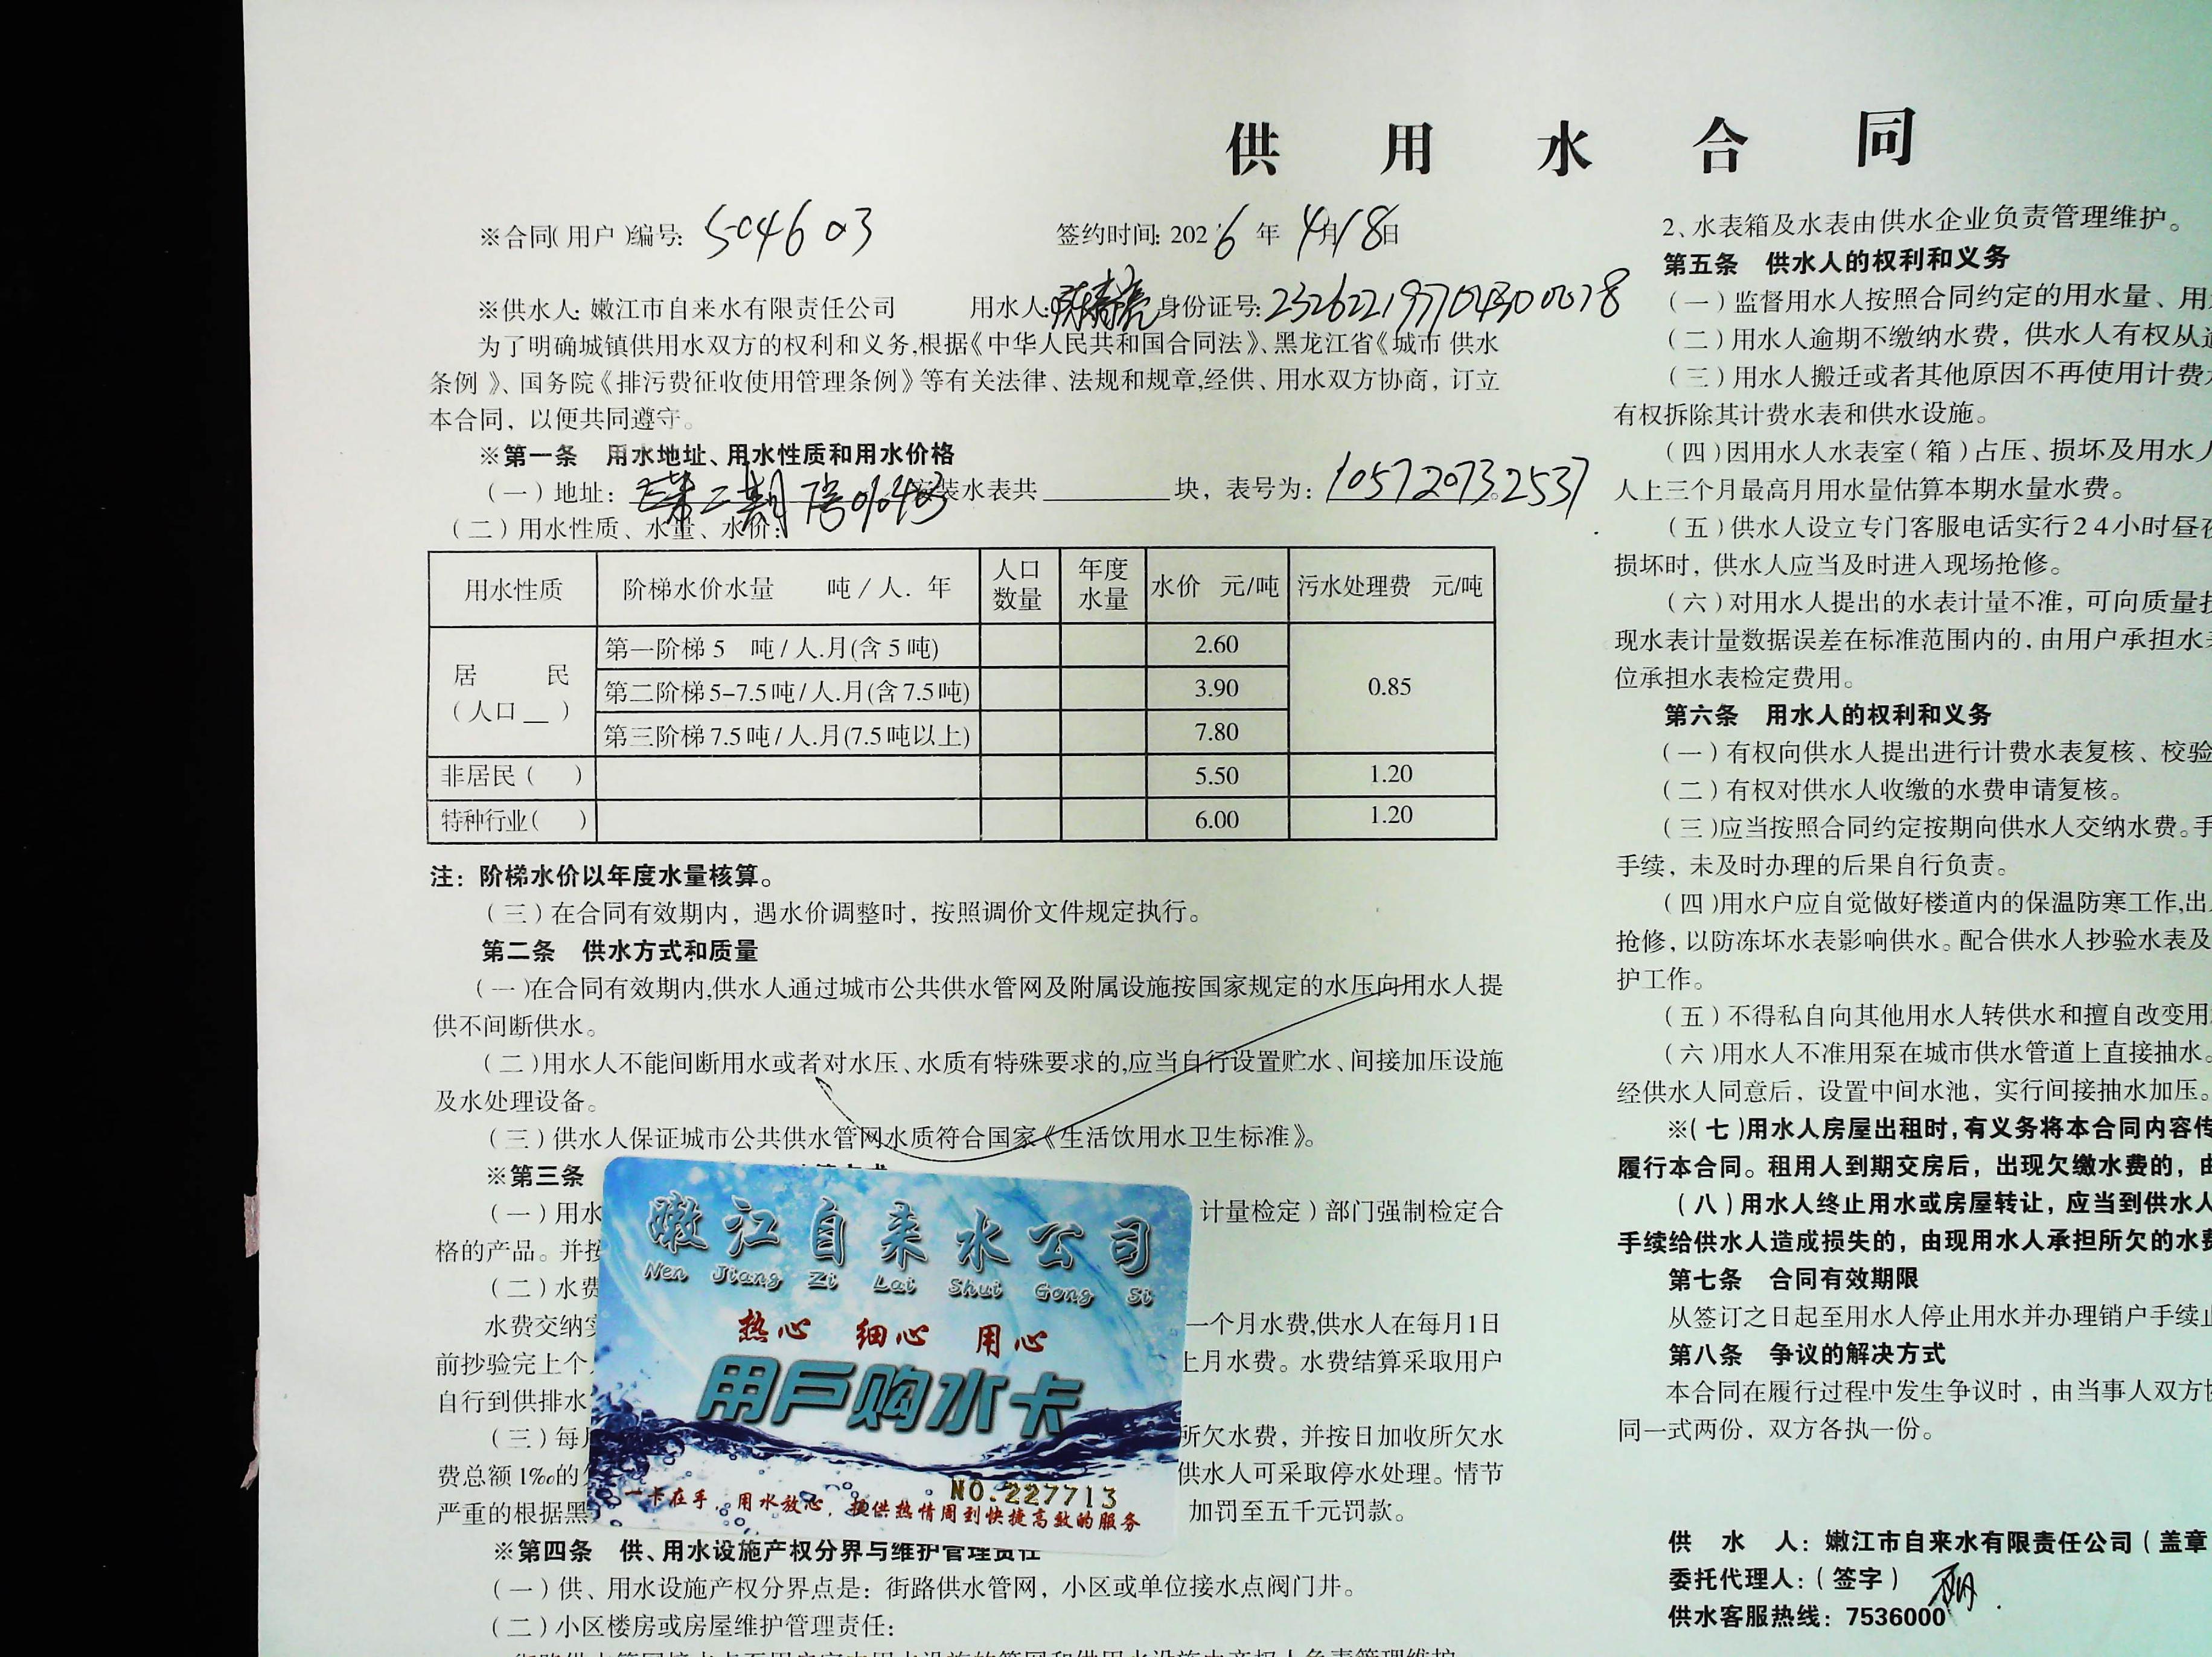 供用水合同
※合同(用户)编号: 504603 签约时间: 2026年4月18日
※供水人: 嫩江市自来水有限责任公司 用水人: 身份证号:
为了明确城镇供用水双方的权利和义务,根据《中华人民共和国合同法》、黑龙江省《城市供水
条例》、国务院《排污费征收使用管理条例》等有关法律、法规和规章,经供、用水双方协商,订立
本合同,以便共同遵守。
※第一条 用水地址、用水性质和用水价格
(一)地址: 二期 安装水表共 块,表号为: 105720732537
(二)用水性质、水量、水价:
用水性质 阶梯水价水量 吨/人.年 人口数量 年度水量 水价 元/吨 污水处理费 元/吨
居民(人口__) 第一阶梯5 吨/人.月(含5吨) 2.60 0.85
第二阶梯5-7.5吨/人.月(含7.5吨) 3.90
第三阶梯7.5吨/人.月(7.5吨以上) 7.80
非居民( ) 5.50 1.20
特种行业( ) 6.00 1.20
注:阶梯水价以年度水量核算。
(三)在合同有效期内,遇水价调整时,按照调价文件规定执行。
第二条 供水方式和质量
(一)在合同有效期内,供水人通过城市公共供水管网及附属设施按国家规定的水压向用水人提
供不间断供水。
(二)用水人不能间断用水或者对水压、水质有特殊要求的,应当自行设置贮水、间接加压设施
及水处理设备。
(三)供水人保证城市公共供水管网水质符合国家《生活饮用水卫生标准》。
※第三条
(一)用水 计量检定)部门强制检定合
格的产品。并按
(二)水费
水费交纳实 一个月水费,供水人在每月1日
前抄验完上个 上月水费。水费结算采取用户
自行到供排水
(三)每月 所欠水费,并按日加收所欠水
费总额1‰的 供水人可采取停水处理。情节
严重的根据黑 加罚至五千元罚款。
※第四条 供、用水设施产权分界与维护管理责任
(一)供、用水设施产权分界点是:街路供水管网,小区或单位接水点阀门井。
(二)小区楼房或房屋维护管理责任:
嫩江自来水公司
Nen Jiang Zi Lai Shui Gong Si
热心 细心 用心
用户购水卡
NO.227713
一卡在手,用水放心,提供热情周到快捷高效的服务
2、水表箱及水表由供水企业负责管理维护。
第五条 供水人的权利和义务
(一)监督用水人按照合同约定的用水量、用
(二)用水人逾期不缴纳水费,供水人有权从
(三)用水人搬迁或者其他原因不再使用计费
有权拆除其计费水表和供水设施。
(四)因用水人水表室(箱)占压、损坏及用水人
人上三个月最高月用水量估算本期水量水费。
(五)供水人设立专门客服电话实行24小时昼夜
损坏时,供水人应当及时进入现场抢修。
(六)对用水人提出的水表计量不准,可向质量技
现水表计量数据误差在标准范围内的,由用户承担水
位承担水表检定费用。
第六条 用水人的权利和义务
(一)有权向供水人提出进行计费水表复核、校验
(二)有权对供水人收缴的水费申请复核。
(三)应当按照合同约定按期向供水人交纳水费。手
手续,未及时办理的后果自行负责。
(四)用水户应自觉做好楼道内的保温防寒工作,出
抢修,以防冻坏水表影响供水。配合供水人抄验水表及
护工作。
(五)不得私自向其他用水人转供水和擅自改变用
(六)用水人不准用泵在城市供水管道上直接抽水。
经供水人同意后,设置中间水池,实行间接抽水加压。
※(七)用水人房屋出租时,有义务将本合同内容传
履行本合同。租用人到期交房后,出现欠缴水费的,由
(八)用水人终止用水或房屋转让,应当到供水人
手续给供水人造成损失的,由现用水人承担所欠的水费
第七条 合同有效期限
从签订之日起至用水人停止用水并办理销户手续止
第八条 争议的解决方式
本合同在履行过程中发生争议时,由当事人双方协
同一式两份,双方各执一份。
供水人:嫩江市自来水有限责任公司(盖章
委托代理人:(签字)
供水客服热线:7536000